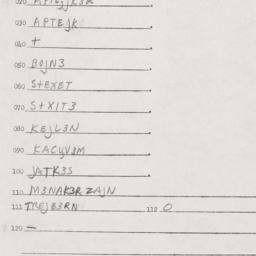 030 APTEJK.
040 +.
050 BOJN3.
060 S+EXET.
070 S+X1T3.
080 KEJL3N.
090 KACYV3M.
100 JATK3S.
110 M3NAK3R ZAJN
111 TREJB3RN 112 O
120 —